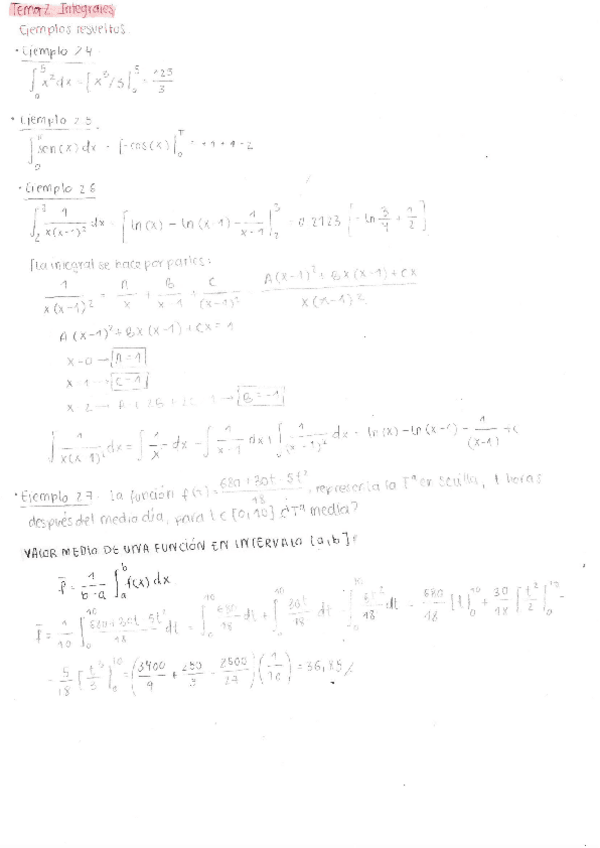 Tema 2 Integrales
Ejemplos resueltos.
· Ejemplo 2.4
∫₀⁵ x² dx = [x³/3]₀⁵ = 125/3
· Ejemplo 2.5
∫₀^π sen(x) dx = [-cos(x)]₀^π = +1+1=2
· Ejemplo 2.6
∫₂³ 1/(x(x-1)²) dx = [ln(x) - ln(x-1) - 1/(x-1)]₂³ = 0.2123 [-ln 3/4 + 1/2]
[la integral se hace por partes:
1/(x(x-1)²) = A/x + B/(x-1) + C/(x-1)² = (A(x-1)² + Bx(x-1) + Cx)/(x(x-1)²)
A(x-1)² + Bx(x-1) + Cx = 1
x=0 → A=1
x=1 → C=1
x=2 → B=-1
∫ 1/(x(x-1)²) dx = ∫ 1/x dx - ∫ 1/(x-1) dx + ∫ 1/(x-1)² dx = ln(x) - ln(x-1) - 1/(x-1) + C
· Ejemplo 2.7 la función = (680+30t-5t²)/18, representa la Tª en Sevilla, t horas
después del medio día, para t ∈ [0,10] ¿Tª media?
VALOR MEDIO DE UNA FUNCIÓN EN INTERVALO [a,b]:
f̄ = 1/(b-a) ∫ₐᵇ f(x) dx
f̄ = 1/10 ∫₀¹⁰ (680+30t-5t²)/18 dt = ∫₀¹⁰ 680/18 dt + ∫₀¹⁰ 30t/18 dt - ∫₀¹⁰ 5t²/18 dt = 680/18 [t]₀¹⁰ + 30/18 [t²/2]₀¹⁰ -
- 5/18 [t³/3]₀¹⁰ = (3400/9 + 250/3 - 2500/27)(1/10) = 36,85